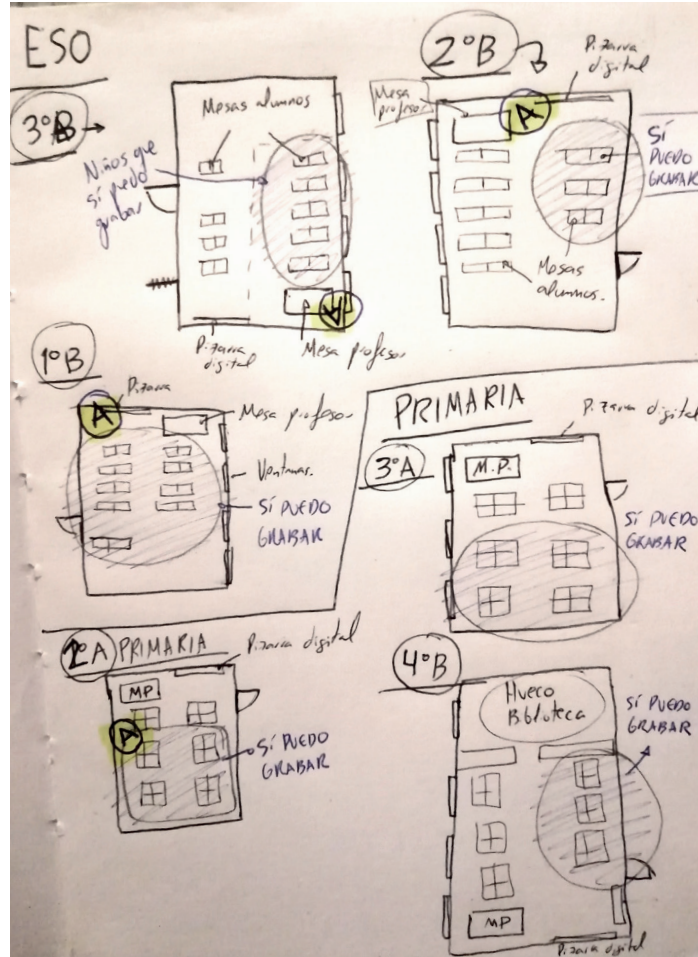 ESO
3ºB
Mesas alumnos
Niños que
sí puedo
grabar
A
Pizarra
digital
Mesa profesor
2ºB
Pizarra
digital
Mesa
profesor
A
SÍ
PUEDO
GRABAR
Mesas
alumnos.
1ºB
A
Pizarra
Mesa profesor
Ventanas.
SÍ PUEDO
GRABAR
PRIMARIA
3ºA
Pizarra digital
M.P.
SÍ PUEDO
GRABAR
PRIMARIA
Pizarra digital
MP
A
SÍ PUEDO
GRABAR
4ºB
Hueco
Biblioteca
SÍ PUEDO
GRABAR
MP
Pizarra digital